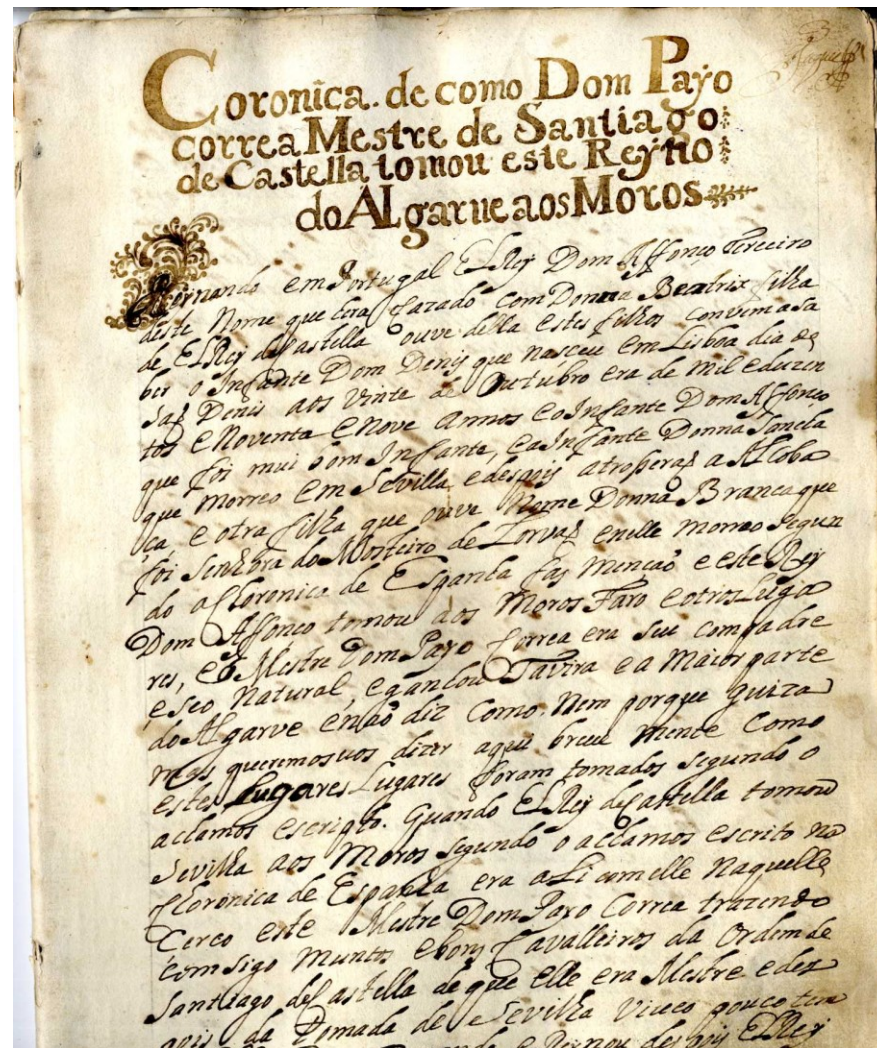 Coronica. de como Dom Payo
correa Mestre de Santiago
de Castella tomou este Reyno
do ALgarue aos Moros
Reernando em Portugal ElRey Dom Affonço tereceiro
deste Nome que Era Cazado com Donna Beatrix filha
de ElRey de Castella ouve della estes filhos convem a sa
ber o Infante Dom Denis que nasceu em Lisboa dia de
Saõ Denis aos vinte de Outubro era de mil eduzen
tos e Noventa e Nove annos e o Infante Dom Affonço
que foi mui bom Infante, e a Infante Donna Sancha
que morreo em Sevilla e despois a troxeraõ a Alcoba
ça e otra filha que ouve Nome Donna Branca que
foi Senhora do Mosteiro de Lorvaõ e nelle morreo segun
do a Coronica de Espanha fas mencaõ e este Rey
Dom Affonco tomou aos Moros Faro e otros Luga
res, e o Mestre Dom Payo Correa era seu compadre
e seo Natural, e ganhou Tavira e a Maior parte
do Algarve e naõ diz Como. Nem porque guiza
mas queremos vos dizer aqui breve mente Como
estes Lugares Lugares foram tomados segundo o
aclamos escripto. Quando ElRey de Castella tomou
Sevilha aos Moros segundo o aclamos escrito na
Coronica de Espanha era ali com elle Naquelle
Cerco este Mestre Dom Payo Correa trazendo
comsigo muntos e bons Cavalleiros da Ordem de
Santiago de Castella de que Elle era Mestre e dez
pois da Tomada de Sevilha viveo pouco tem
e Reynou despois ElRey